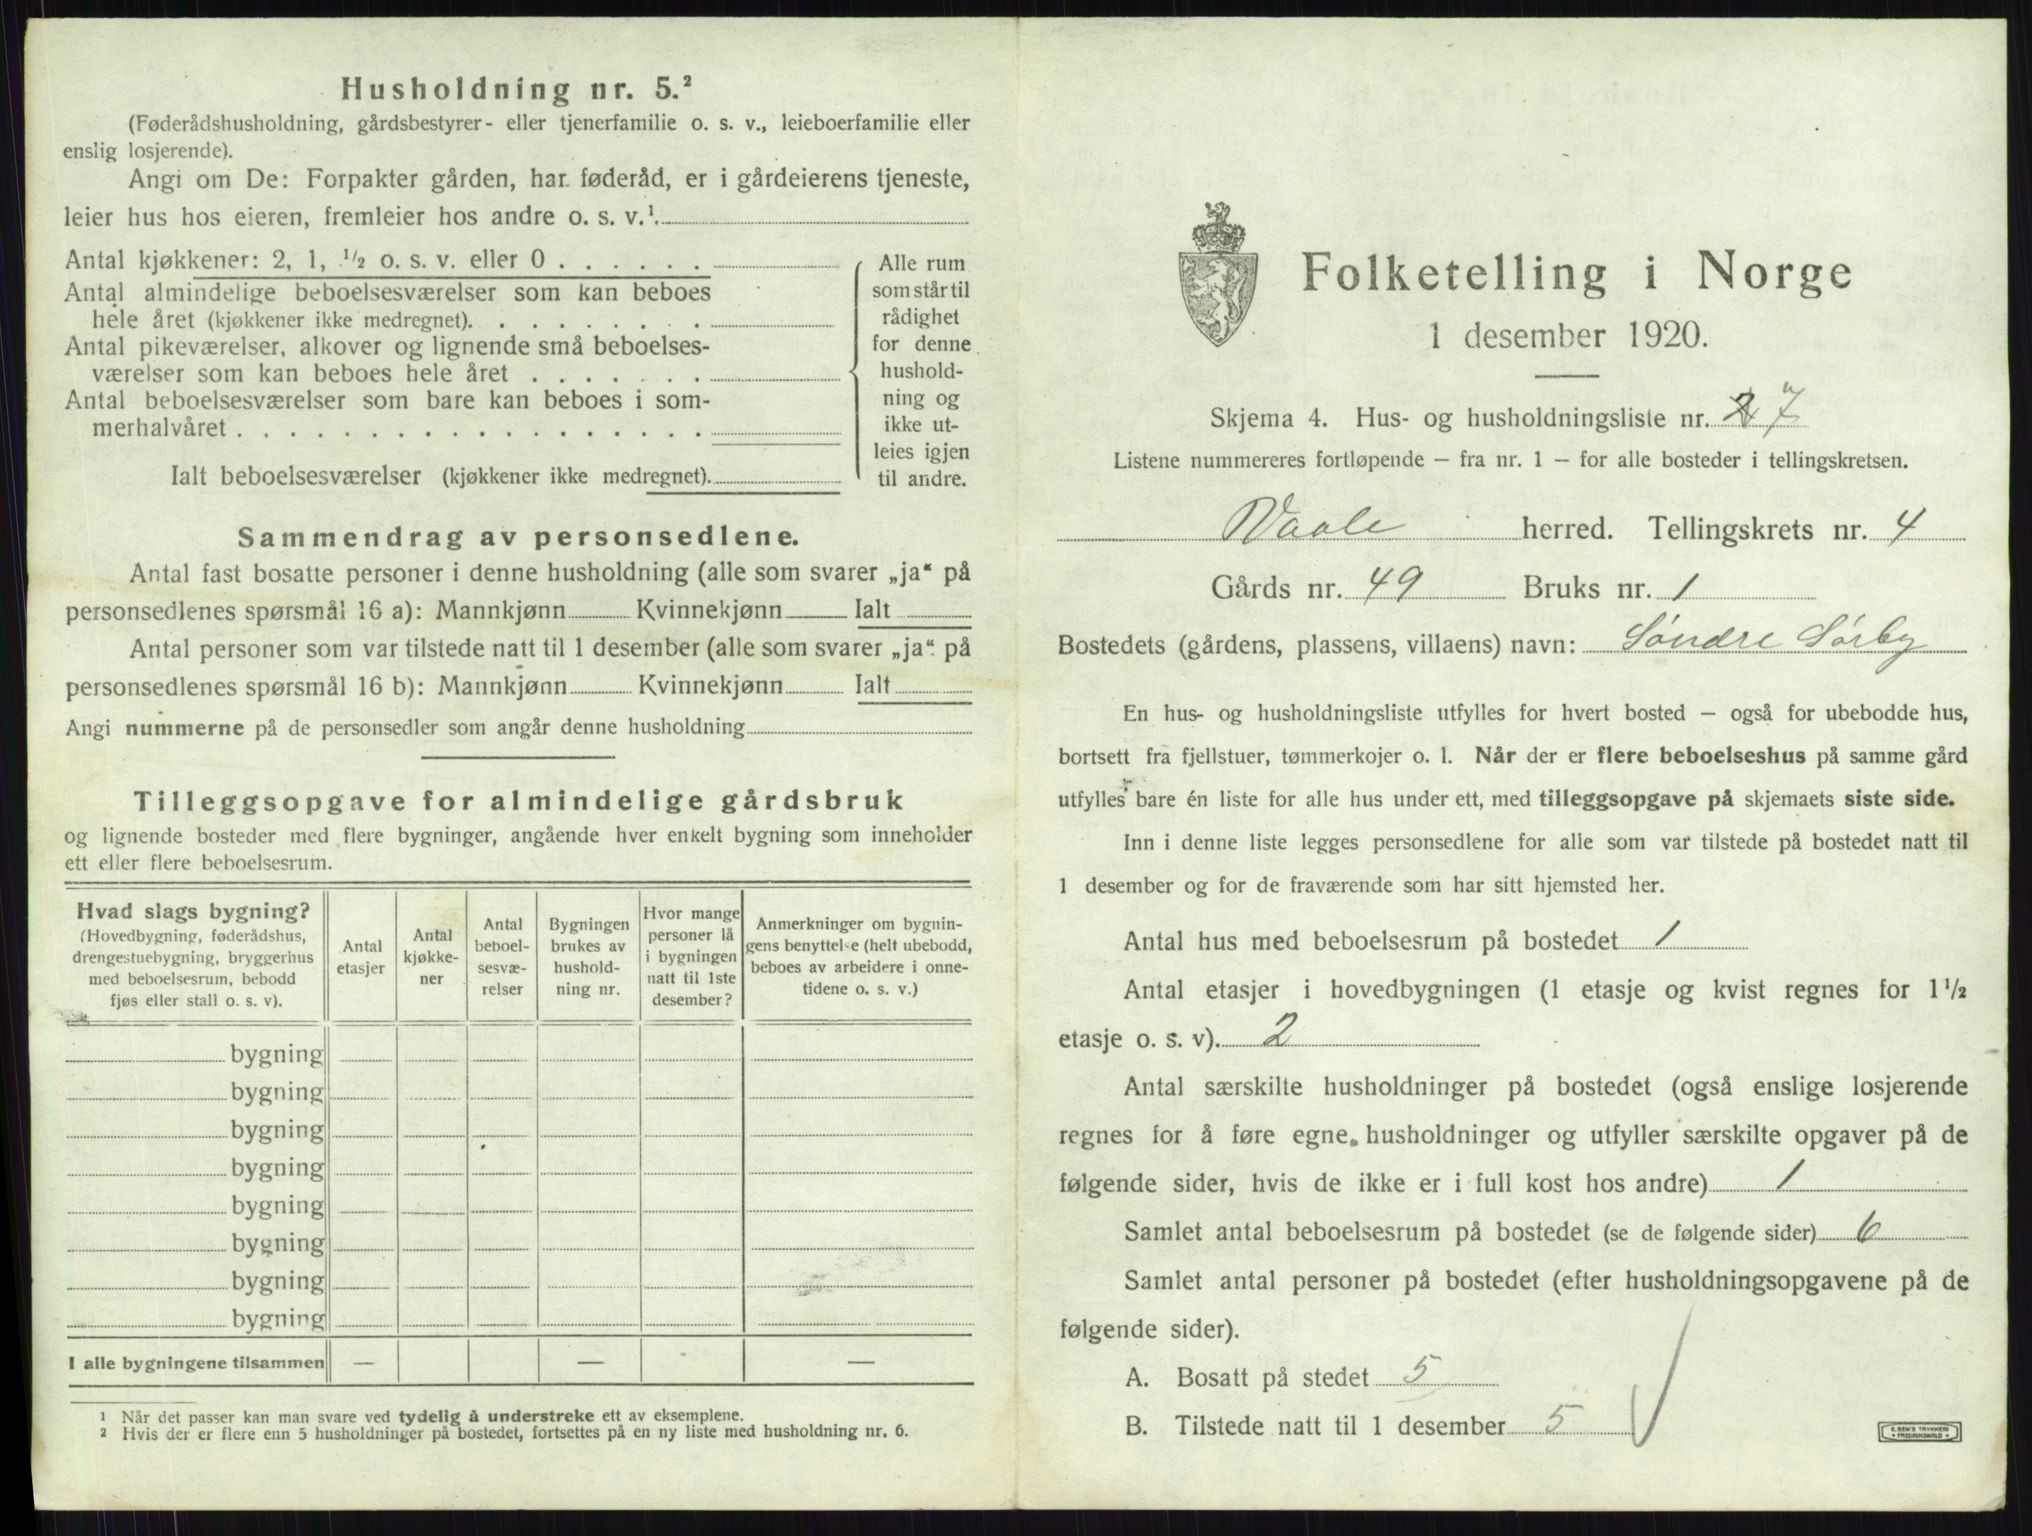 Husholdning nr. 5.²
(Føderådshusholdning, gårdsbestyrer- eller tjenerfamilie o. s. v., leieboerfamilie eller
enslig losjerende).
Angi om De: Forpakter gården, har føderåd, er i gårdeierens tjeneste,
leier hus hos eieren, fremleier hos andre o. s. v.¹
Antal kjøkkener: 2, 1, ½ o. s. v. eller 0 . . . . . .
Antal almindelige beboelsesværelser som kan beboes
hele året (kjøkkener ikke medregnet). . . . . . . . .
Antal pikeværelser, alkover og lignende små beboelses-
værelser som kan beboes hele året . . . . . . .
Antal beboelsesværelser som bare kan beboes i som-
merhalvåret . . . . . . . . . . . . . . . . . .
Ialt beboelsesværelser (kjøkkener ikke medregnet).
Alle rum
som står til
rådighet
for denne
hushold-
ning og
ikke ut-
leies igjen
til andre.
Sammendrag av personsedlene.
Antal fast bosatte personer i denne husholdning (alle som svarer „ja“ på
personsedlenes spørsmål 16 a): Mannkjønn Kvinnekjønn Ialt
Antal personer som var tilstede natt til 1 desember (alle som svarer „ja“ på
personsedlenes spørsmål 16 b): Mannkjønn Kvinnekjønn Ialt
Angi nummerne på de personsedler som angår denne husholdning
Tilleggsopgave for almindelige gårdsbruk
og lignende bosteder med flere bygninger, angående hver enkelt bygning som inneholder
ett eller flere beboelsesrum.
Hvad slags bygning?
(Hovedbygning, føderådshus,
drengestuebygning, bryggerhus
med beboelsesrum, bebodd
fjøs eller stall o. s. v).
Antal
etasjer
Antal
kjøkke-
ner
Antal
beboel-
sesvæ-
relser
Bygningen
brukes av
hushold-
ning nr.
Hvor mange
personer lå
i bygningen
natt til 1ste
desember?
Anmerkninger om bygnin-
gens benyttelse (helt ubebodd,
beboes av arbeidere i onne-
tidene o. s. v.)
bygning
bygning
bygning
bygning
bygning
bygning
bygning
bygning
I alle bygningene tilsammen — — —
¹ Når det passer kan man svare ved tydelig å understreke ett av eksemplene.
² Hvis der er flere enn 5 husholdninger på bostedet, fortsettes på en ny liste med husholdning nr. 6.
Folketelling i Norge
1 desember 1920.
Skjema 4. Hus- og husholdningsliste nr. 7
Listene nummereres fortløpende – fra nr. 1 – for alle bosteder i tellingskretsen.
Vaale herred. Tellingskrets nr. 4
Gårds nr. 49 Bruks nr. 1
Bostedets (gårdens, plassens, villaens) navn: Søndre Sørby
En hus- og husholdningsliste utfylles for hvert bosted – også for ubebodde hus,
bortsett fra fjellstuer, tømmerkojer o. l. Når der er flere beboelseshus på samme gård
utfylles bare én liste for alle hus under ett, med tilleggsopgave på skjemaets siste side.
Inn i denne liste legges personsedlene for alle som var tilstede på bostedet natt til
1 desember og for de fraværende som har sitt hjemsted her.
Antal hus med beboelsesrum på bostedet 1
Antal etasjer i hovedbygningen (1 etasje og kvist regnes for 1 ½
etasje o. s. v). 2
Antal særskilte husholdninger på bostedet (også enslige losjerende
regnes for å føre egne husholdninger og utfyller særskilte opgaver på de
følgende sider, hvis de ikke er i full kost hos andre) 1
Samlet antal beboelsesrum på bostedet (se de følgende sider) 6
Samlet antal personer på bostedet (efter husholdningsopgavene på de
følgende sider).
A. Bosatt på stedet 5
B. Tilstede natt til 1 desember 5